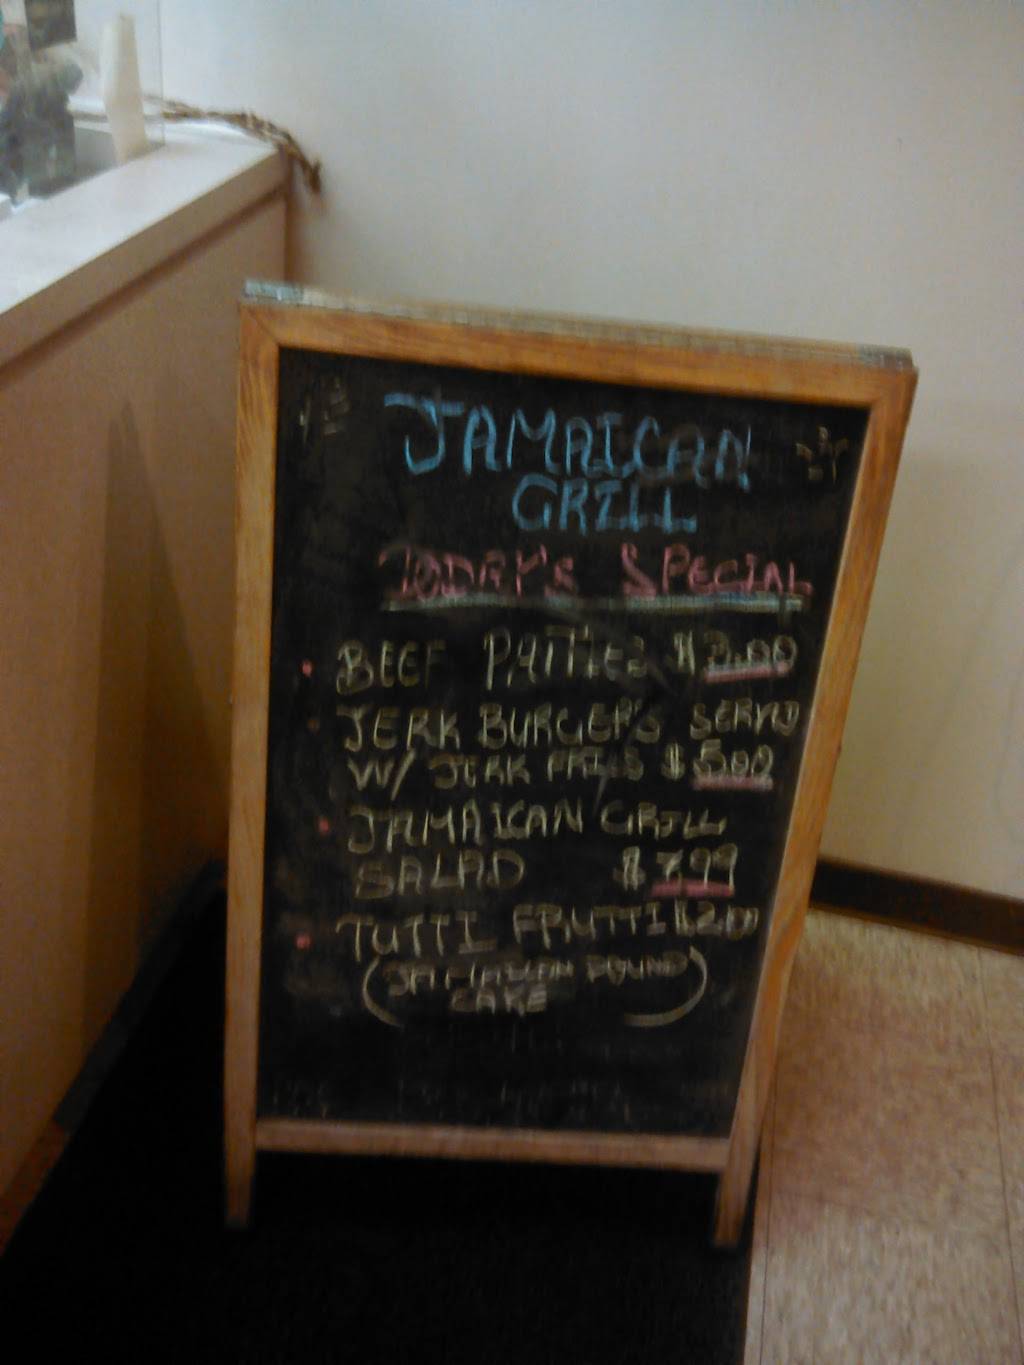 JAMAICAN
GRILL
TODAY'S SPECIAL
BEEF PATTIES $3.00
JERK BURGERS SERVED
W/ JERK FRIES $5.00
JAMAICAN GRILL
SALAD $7.99
TUTTI FRUTTI $2.00
(JAMAICAN POUND
CAKE)